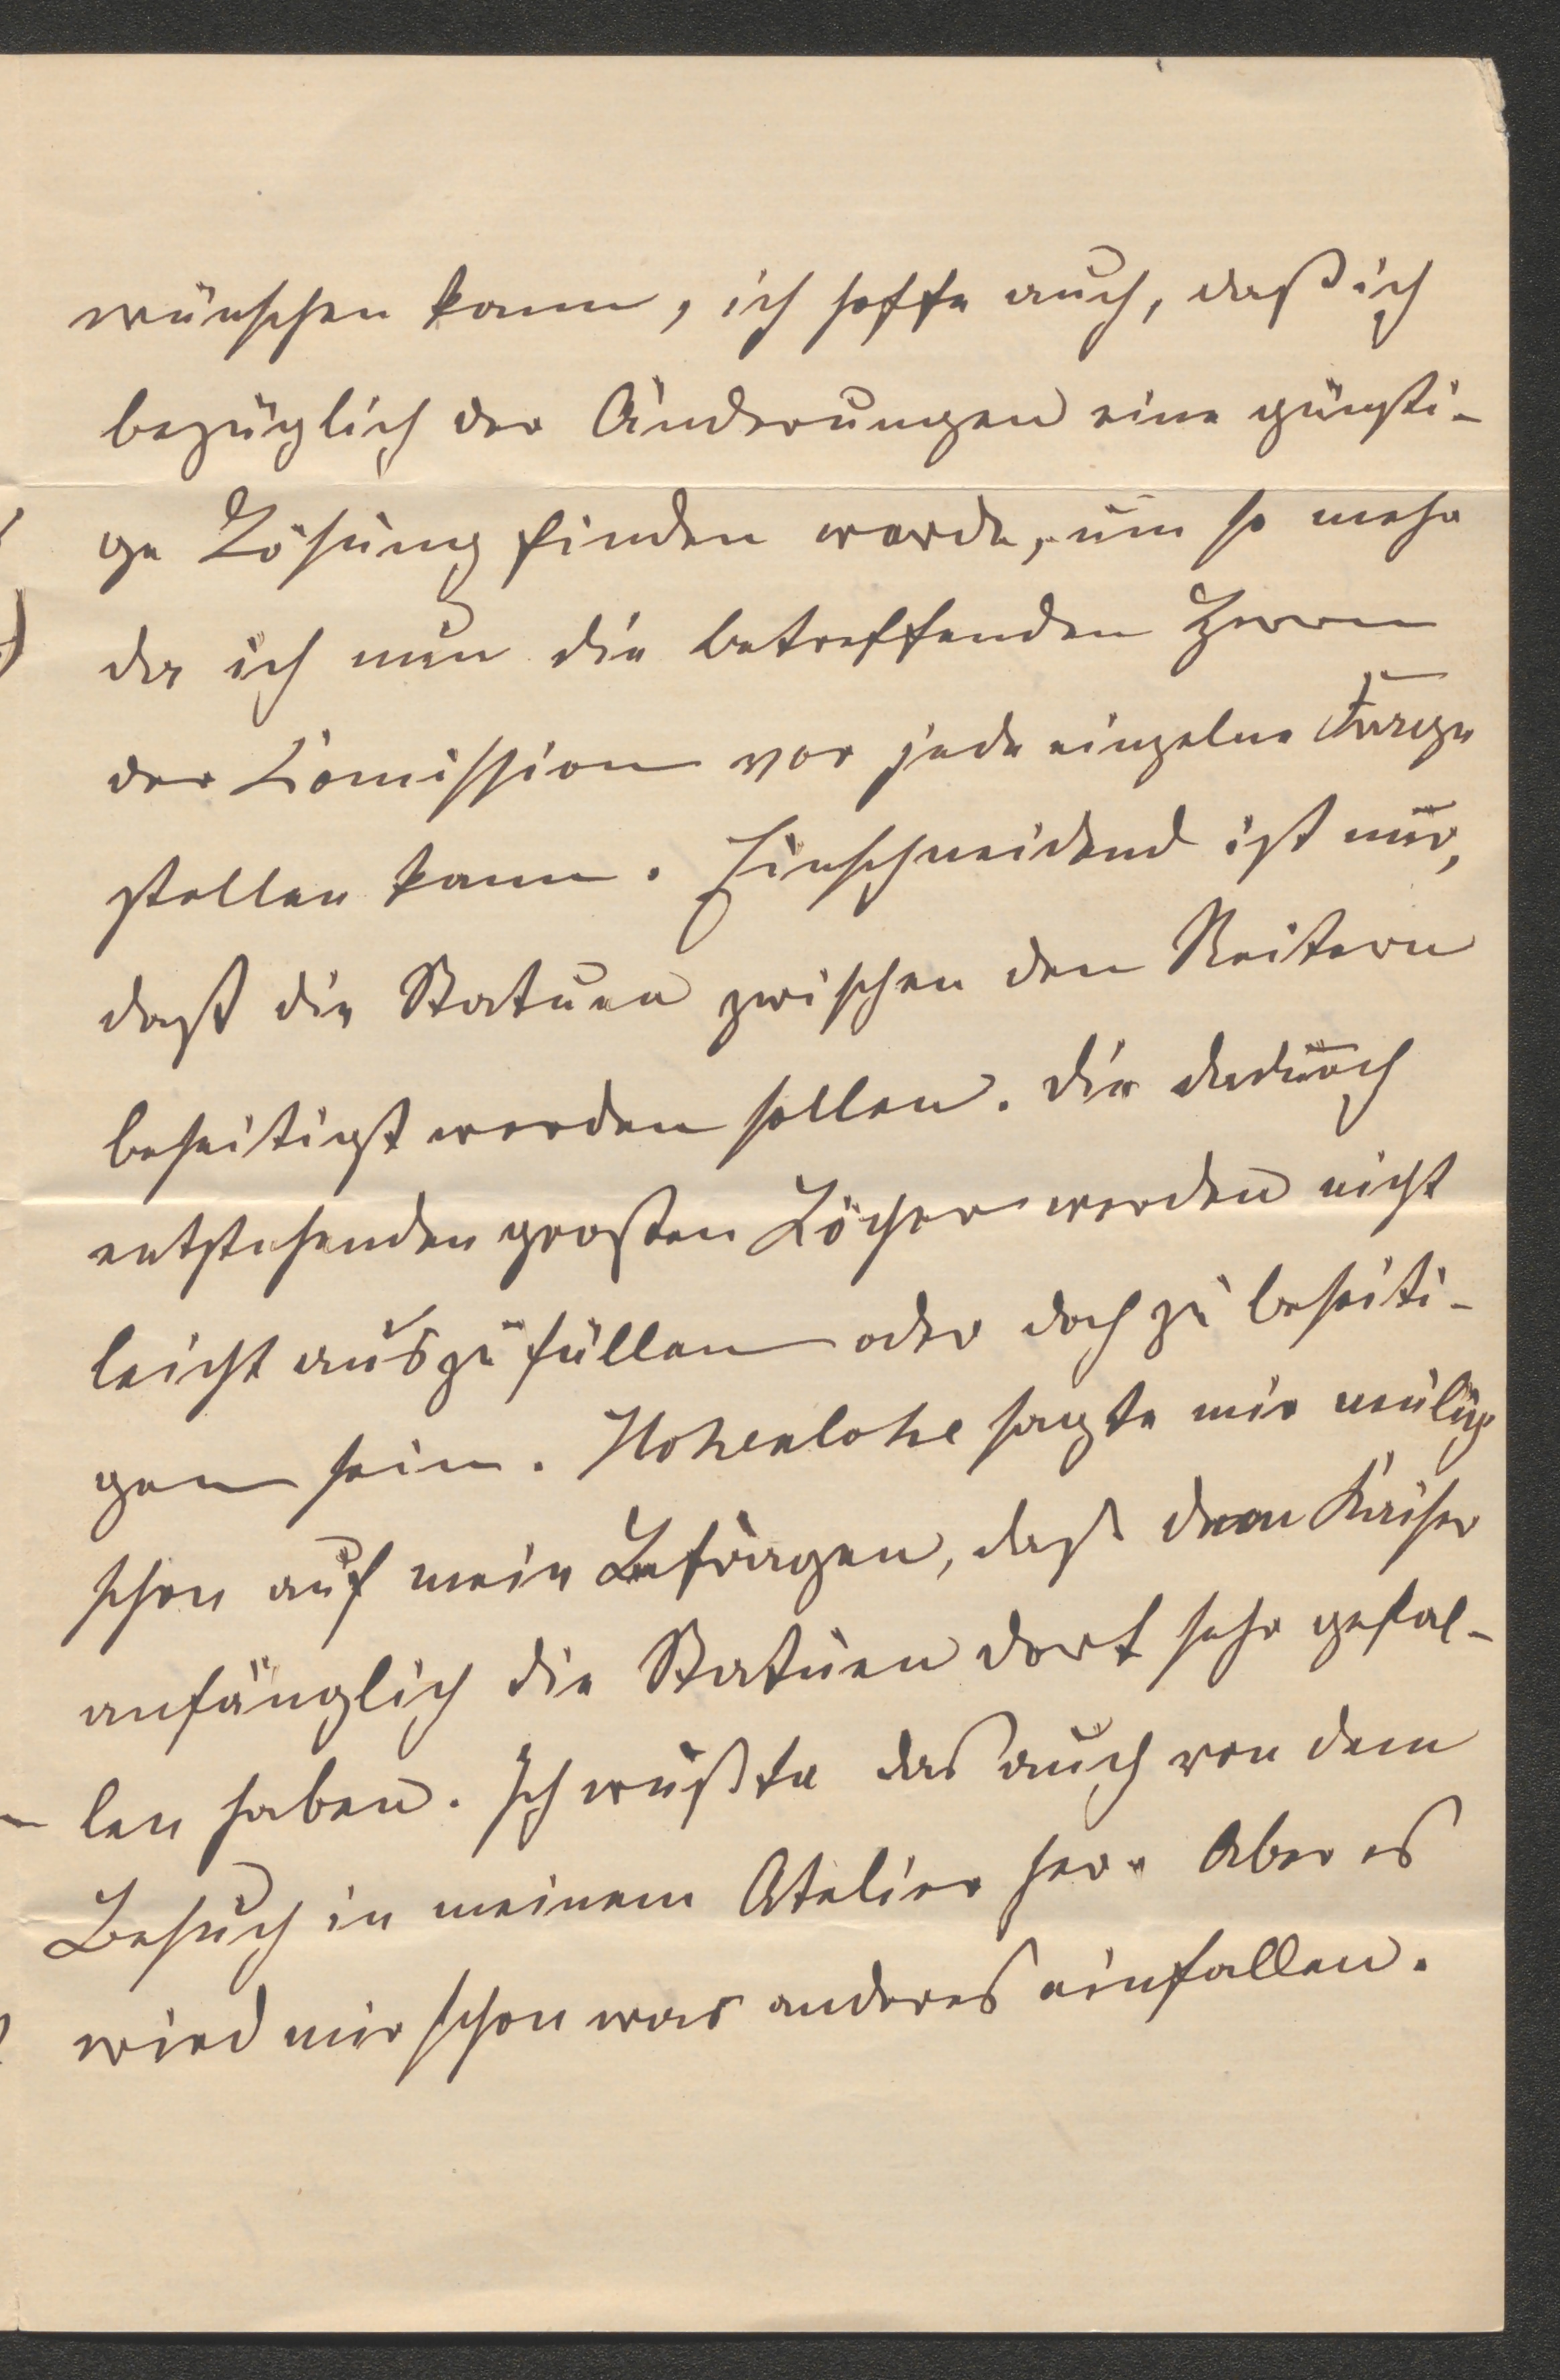 wünschen kann, ich hoffe auch, daß ich
bezüglich der Änderungen eine günsti-
ge Lösung finden werde, um so mehr
da ich nun die betreffenden Herrn
der Comission vor jede einzelne Frage
stellen kann. Einschneidend ist nur,
daß die Statuen zwischen den Reitern
beseitigt werden sollen. Die dadurch
entstehenden großen Löcher werden nicht
leicht auszufüllen oder doch zu beseiti-
gen sein. Hohenlohe sagte mir neulich
schon auf mein Befragen, daß dem Kaiser
anfänglich die Statuen dort sehr gefal-
len haben. Ich wußte das auch von dem
Besuch in meinem Atelier her. Aber es
wird mir schon was anderes einfallen.